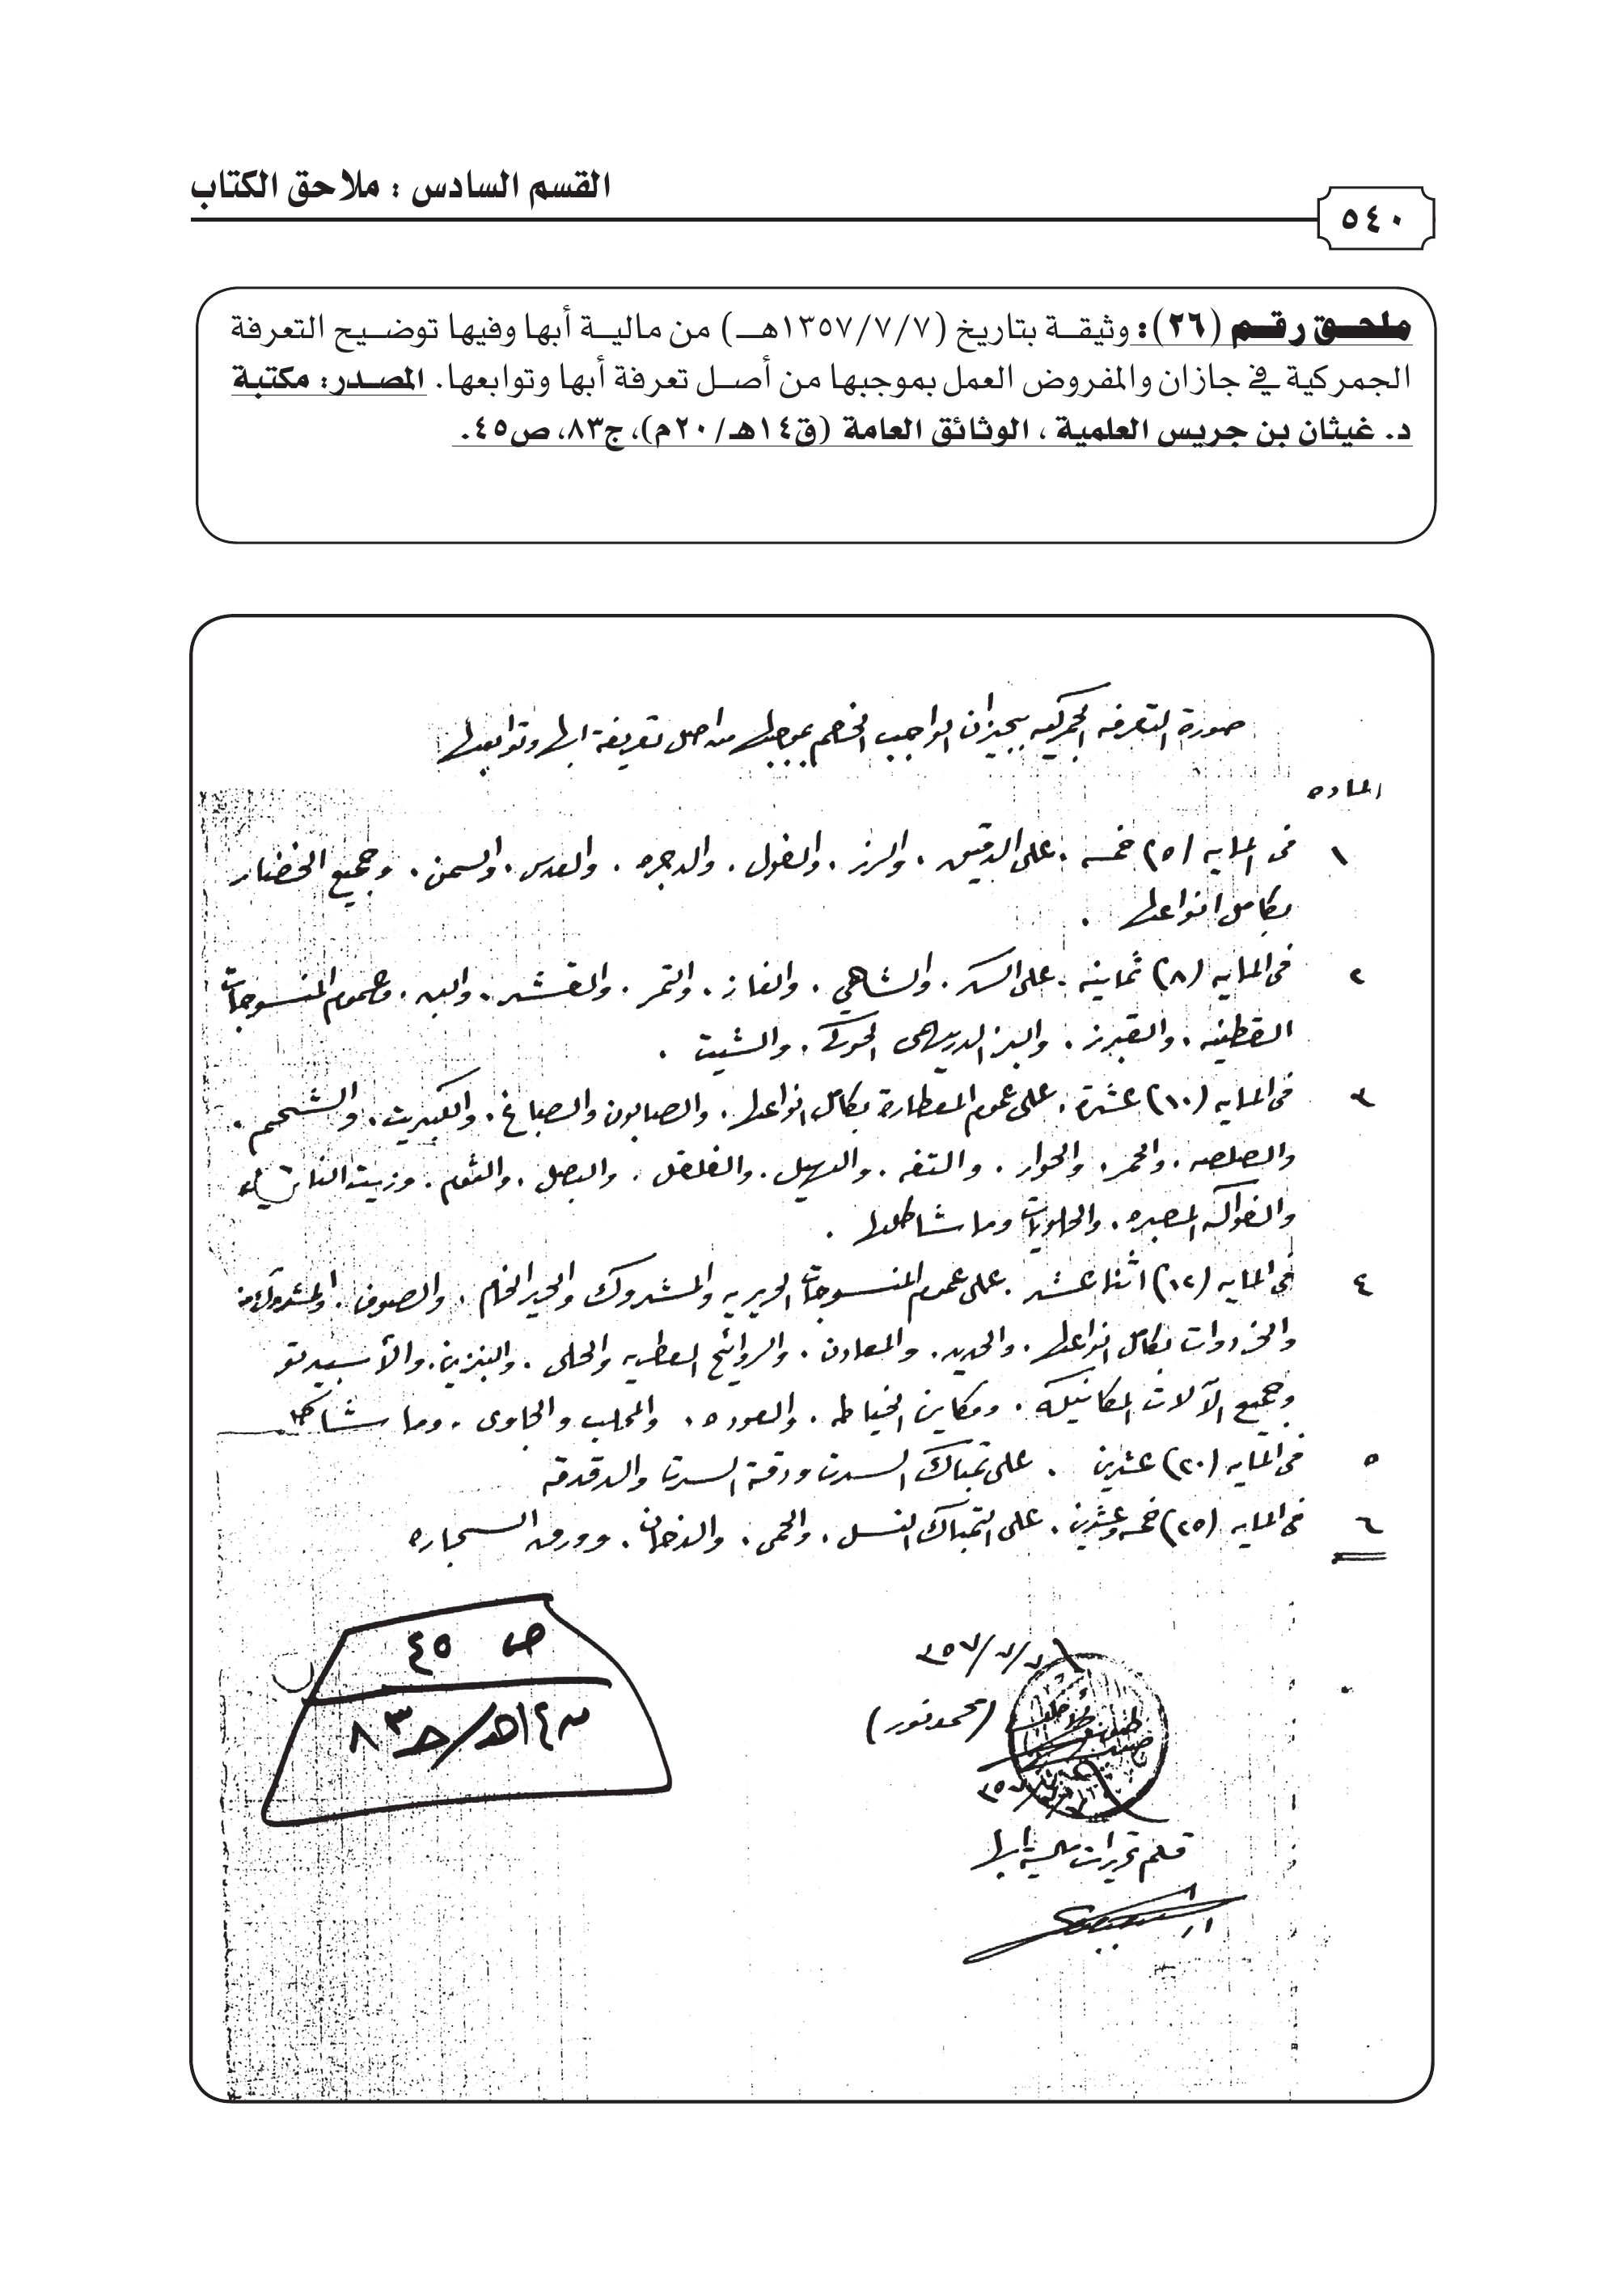 القسم السادس : ملاحق الكتاب
٥٤٠
ملحق رقم (٢٦): وثيقة بتاريخ (١٣٥٧/٧/٧هـ) من مالية أبها وفيها توضيح التعرفة
الجمركية في جازان والمفروض العمل بموجبها من أصل تعرفة أبها وتوابعها. المصدر: مكتبة
د. غيثان بن جريس العلمية ، الوثائق العامة (ق١٤هـ/٢٠م)، ج٨٣، ص٤٥.
صورة التعرفه الجمركيه بجيزان الواجب الخصم بموجبها من اصل تعريفة ابها وتوابعها
الماده
١ فى المايه (٥) خمسه . على الدقيق . والرز . والفول . والدجره . والعدس . والسمن . وجميع الخضار
بكامل انواعها .
٢ فى المايه (٨) ثمانيه . على السكر . والشاهي . والغاز . والتمر . والقشر . والبن . وعموم المنسوجات
القطنيه . والبز الحوكي . والشيت .
٣ فى المايه (١٠) عشرة . على عموم العطارة بكامل انواعها . والصابون والصباغ . والكبريت . والشحم .
والصلصه . والحمر . والحوار . والتفه . والهيل . والفلفل . والبصل . والثوم . وزيت
والفواكه المصبره . والحلويات وما شاكلها .
٤ فى المايه (١٢) اثنا عشر . على عموم المنسوجات الحريريه والمشدوك والحرير الخام . والصوف .
والخردوات بكامل انواعها . والحديد . والمعادن . والروائح العطريه والحلى . والبنزين . والأسبيرتو
وجميع الآلات المكانيكه . ومكاين الخياطه . والعوده . والمحلب والجاوى . وما شاكلها
٥ فى المايه (٢٠) عشرين . على تمباك السرت ورقة السرت والدقدقه
٦ فى المايه (٢٥) خمسه وعشرين . على التمباك . والحمى . والدخان . وورق السجاره
٣٥٧/٧/٧
(محمد نور)
قلم تحريرات مالية ابها
ص ٤٥
ق١٤هـ/ج٨٣